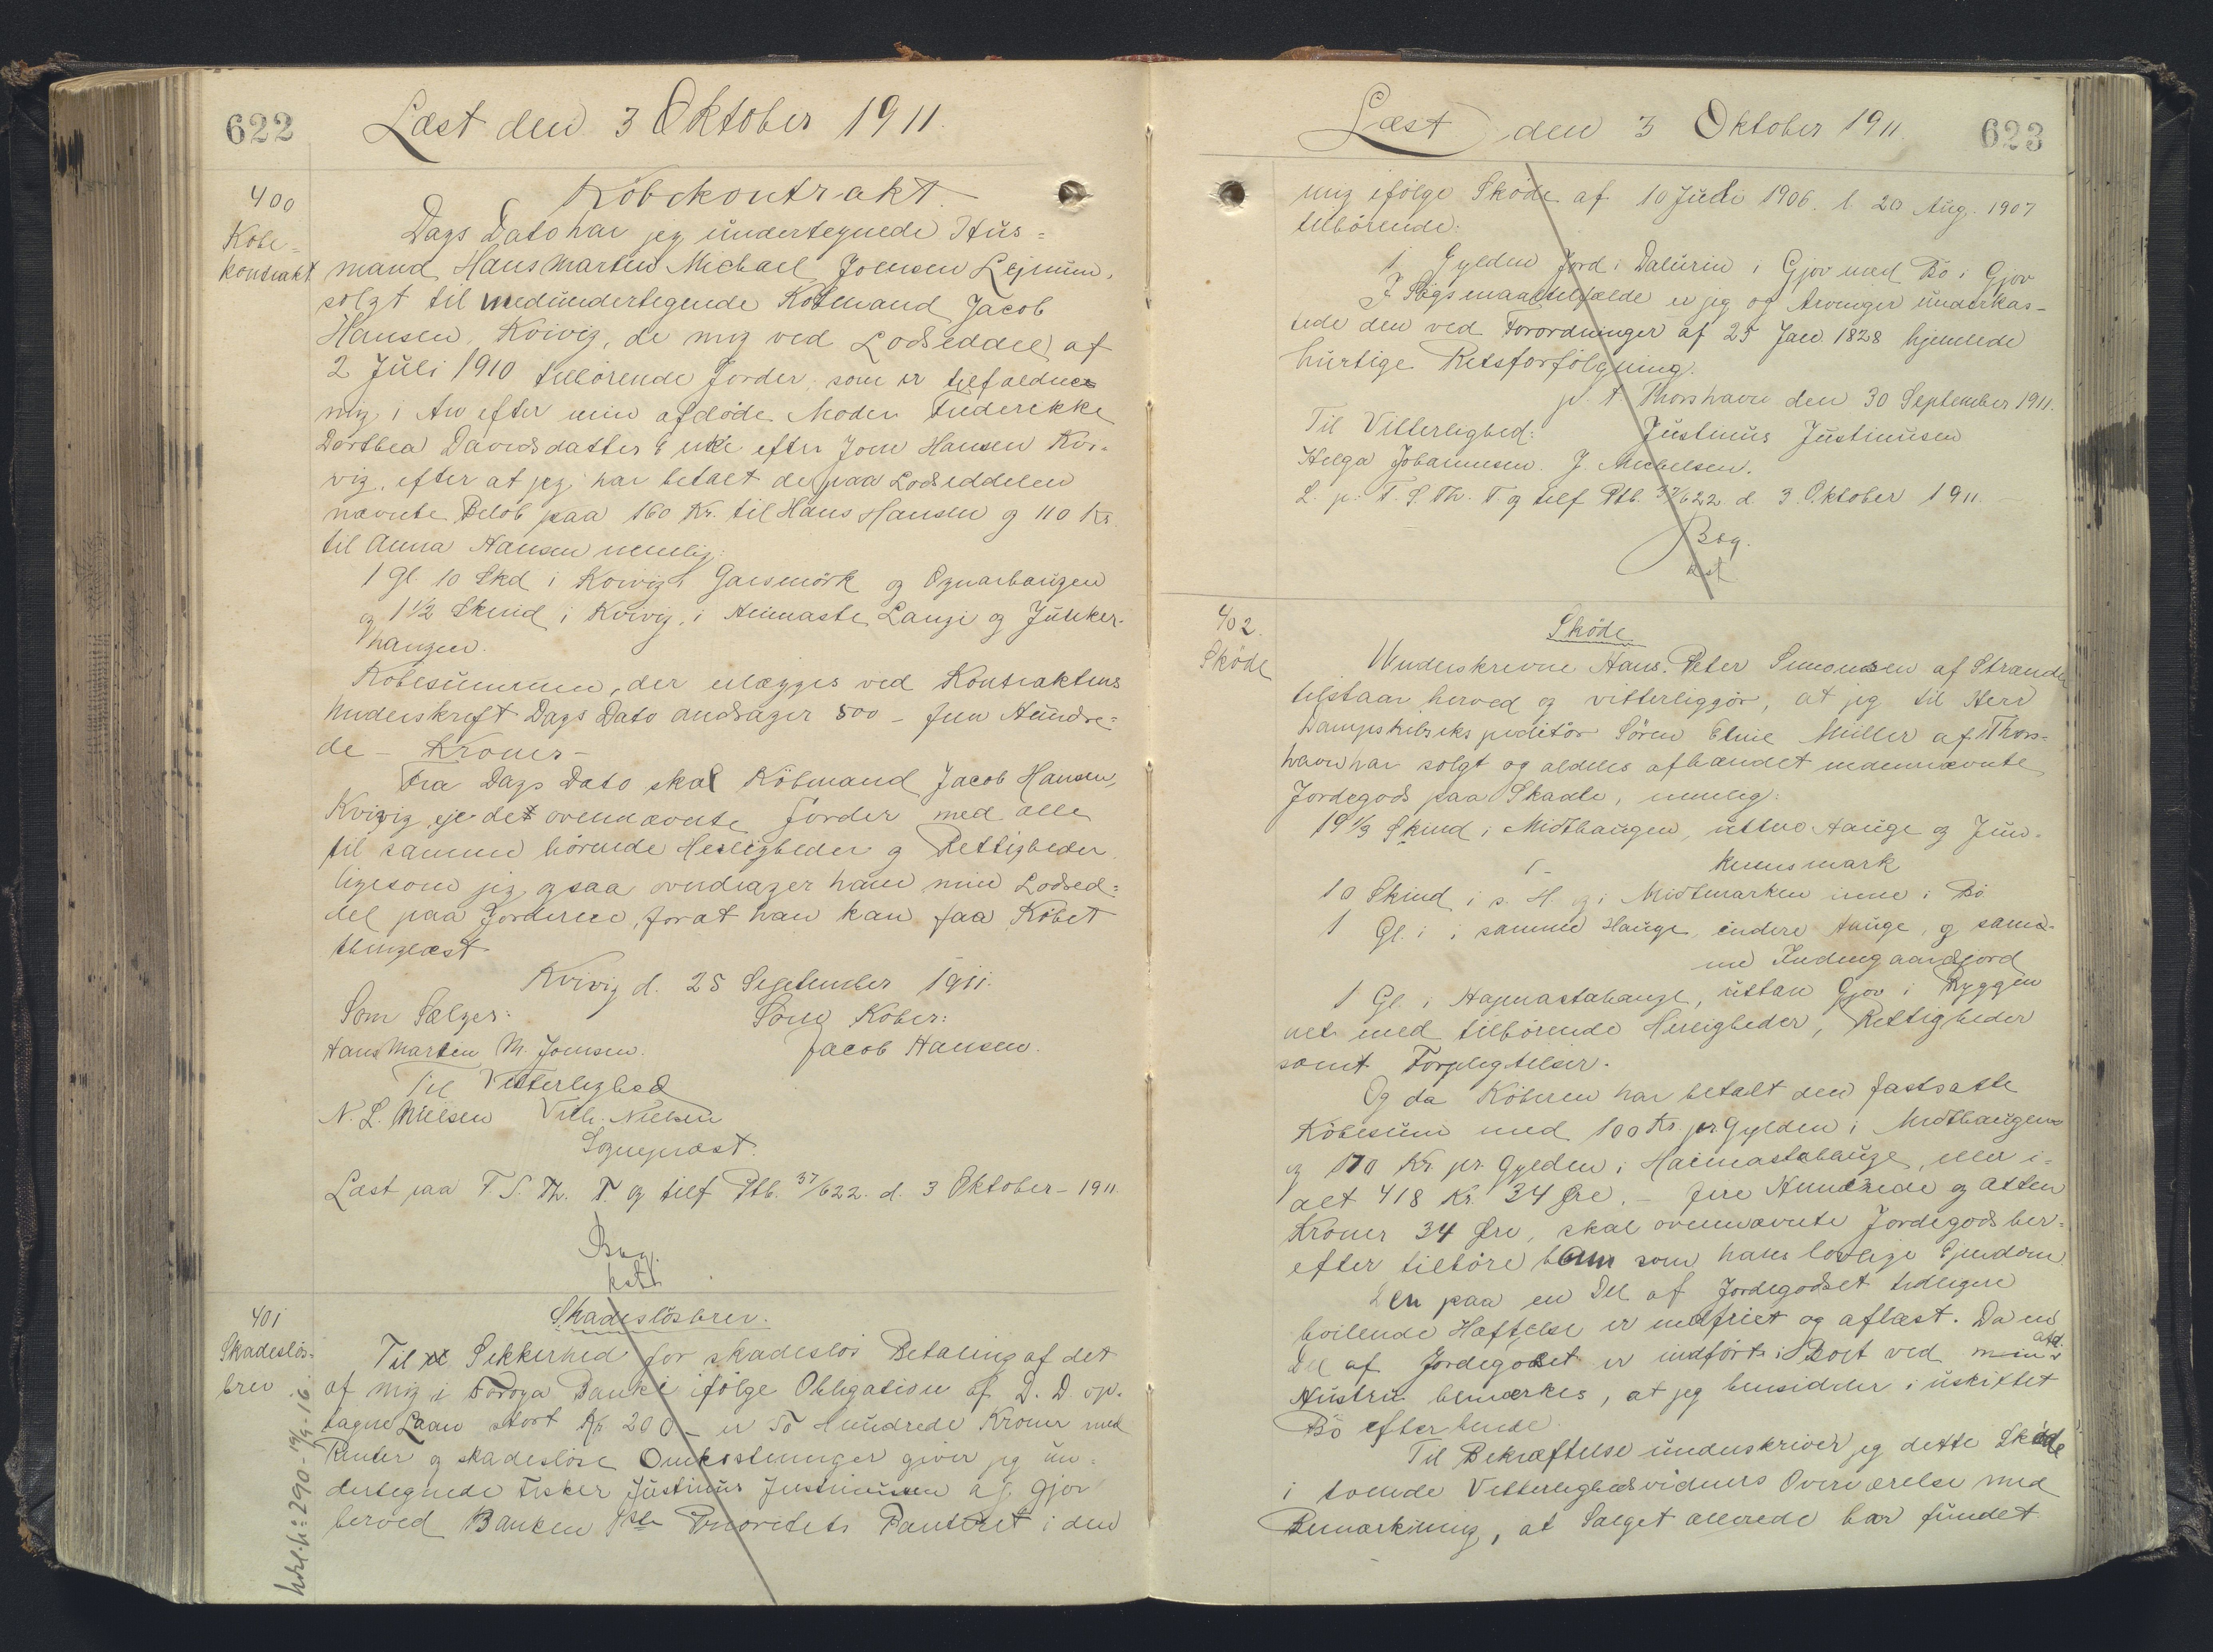 622
Læst den 3 Oktober 1911.
400
Købe=
kontrakt
Købekontrakt.
Dags Dato har jeg undertegnede Hus=
mand Hans Martin Michael Joensen Lejnum,
solgt til medundertegende Købmand Jacob
Hansen, Kvivig, de mig ved Lodseddel af
2 Juli 1910 tilhørende Jorder, som er tilfaldne
mig i Arv efter min afdøde Moder Frederikke
Dorthea Davidsdatter Enke efter Joen Hansen Kvi=
vig, efter at jeg har betalt de paa Lodseddelen
nævnte Beløb paa 160 Kr. til Hans Hansen og 110 Kr.
til Anna Hansen nemlig:
1 Gl. 10 Skd i Kvivig i Garsmørk og Ognarhaugen
og 1 1/2 Skind i Kvivig, i Heimaste Lauge og Junker-
haugen.
Købesummen, der erlægges ved Kontraktens
Underskrift Dags Dato andrager 500 - fem Hundre=
de - Kroner -
Fra Dags Dato skal Købmand Jacob Hansen,
Kvivig eje det ovennævnte Jorder med alle
til samme hørende Herligheder og Rettigheder
ligesom jeg ogsaa overdrager ham min Lodsed=
del paa Jorderne, for at han kan faa Købet
thinglæst.
Kvivig d. 25 September 1911.
Som Sælger: Som Køber:
Hans Martin M. Joensen. Jacob Hansen.
Til Vitterlighed
N. L. Nielsen Vilh. Nielsen
Sognepræst.
Læst paa F. S. Th. T. og tilf Ptb. 37/622. d. 3 Oktober - 1911
Bag.
attt
401
Skadesløs-
brev
hdsl. h: 290 - 19/9 - 16.
Skadesløsbrev.
Til Sikkerhed for skadesløs Betaling af det
af mig i Føroya Banki ifølge Obligation af D. D. op-
tagne Laan stort Kr 200 - er To Hundrede Kroner med
Renter og skadesløse Omkostninger giver jeg un=
dertegnede Fisker Justinus Justinussen af Gjov
herved Banken 1ste Prioritets Panteret i den
Læst den 3 Oktober 1911. 623
mig ifølge Skøde af 10 Juli 1906. l. 20 Aug. 1907
tilhørende:
1 Gylden Jord i Dalurin i Gjov med Bø i Gjov
I Søgsmaalstilfælde er jeg og Arvinger underkas-
tede den ved Forordninger af 25 Jan. 1828 hjemlede
hurtige Retsforfølgning.
p. t. Thorshavn den 30 September 1911.
Til Vitterlighed: Justinus Justinusen
Helga Johannesen. J. Michelsen.
L. p. F. S. Th. T. og tilf Ptb. 37/622 d 3 Oktober 1911.
Bag.
att
402.
Skøde
Skøde
Underskrevne Hans Peter Simonsen af Strande
tilstaar herved og vitterliggør, at jeg til Herr
Dampskibsekspeditør Søren Elnie Müller af Thors=
havn har solgt og aldeles afhændet nedennævnte
Jordegods paa Skaale, nemlig:
19 1/3 Skind i Midthaugen, uttur Hauge og Jun-
kunsmark
10 Skind i s. H. og i Midtmarken inne i Bø
1 Gl. i i samme Hauge, indere Hauge, og sam=
me Indengaardsjord
1 Gl. i Hapnastahauge, uttan Gjov i Ryggen
alt med tilhørende Herligheder, Rettigheder
samt Forpligtelser.
Og da Køberen har betalt den fastsatte
Købesum med 100 Kr. pr. Gylden i Midthaugen
og 170 Kr. pr. Gylden i Haimastahauge, eller i=
alt 418 Kr. 34 Øre. - fire Hundrede og Atten
Kroner 34 Øre, skal ovennævnte Jordegods her=
efter tilhøre ham som hans lovlige Ejendom
Den paa en Del af Jordegodset tidligere
hvilende Hæftelse er indfriet og aflæst. Da en
Del af Jordegodset er indført i Boet ved min afd.
Hustru bemærkes, at jeg hensidder i uskiftet
Bo efter hende.
Til Bekræftelse underskriver jeg dette Skøde
i tvende Vitterlighedsvidners Overværelse med
Bemærkning, at Salget allerede har fundet